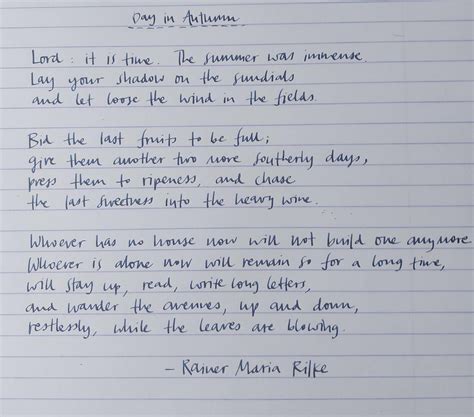 Day in Autumn
Lord: it is time. The summer was immense.
Lay your shadow on the sundials
and let loose the wind in the fields.
Bid the last fruits to be full;
give them another two more southerly days,
press them to ripeness, and chase
the last sweetness into the heavy wine.
Whoever has no house now will not build one anymore
Whoever is alone now will remain so for a long time,
will stay up, read, write long letters,
and wander the avenues, up and down,
restlessly, while the leaves are blowing.
- Rainer Maria Rilke